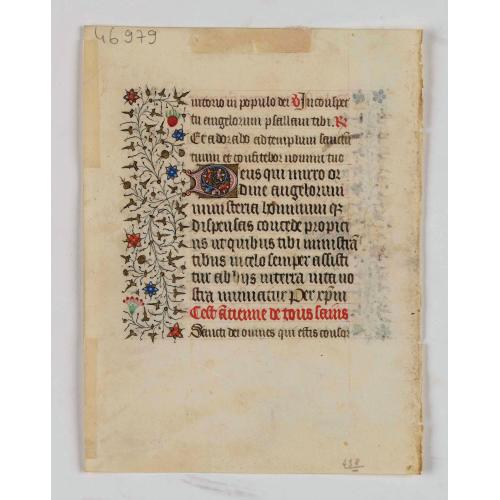 46979
utorio in populo dei V In conspec
tu angelorum psallam tibi. R
Et adorabo ad templum sanctū
tuum et confitebor nomini tuo
Deus qui miro or
dine angelorum
ministeria hominum qȝ
dispensas concede propici
us ut quibus tibi ministrā
tibus in celo semper assisti
tur ab hijs in terra uita no
stra muniatur Per xpm
Cest antienne de tous sains
Sancti dei omnes qui estis consor